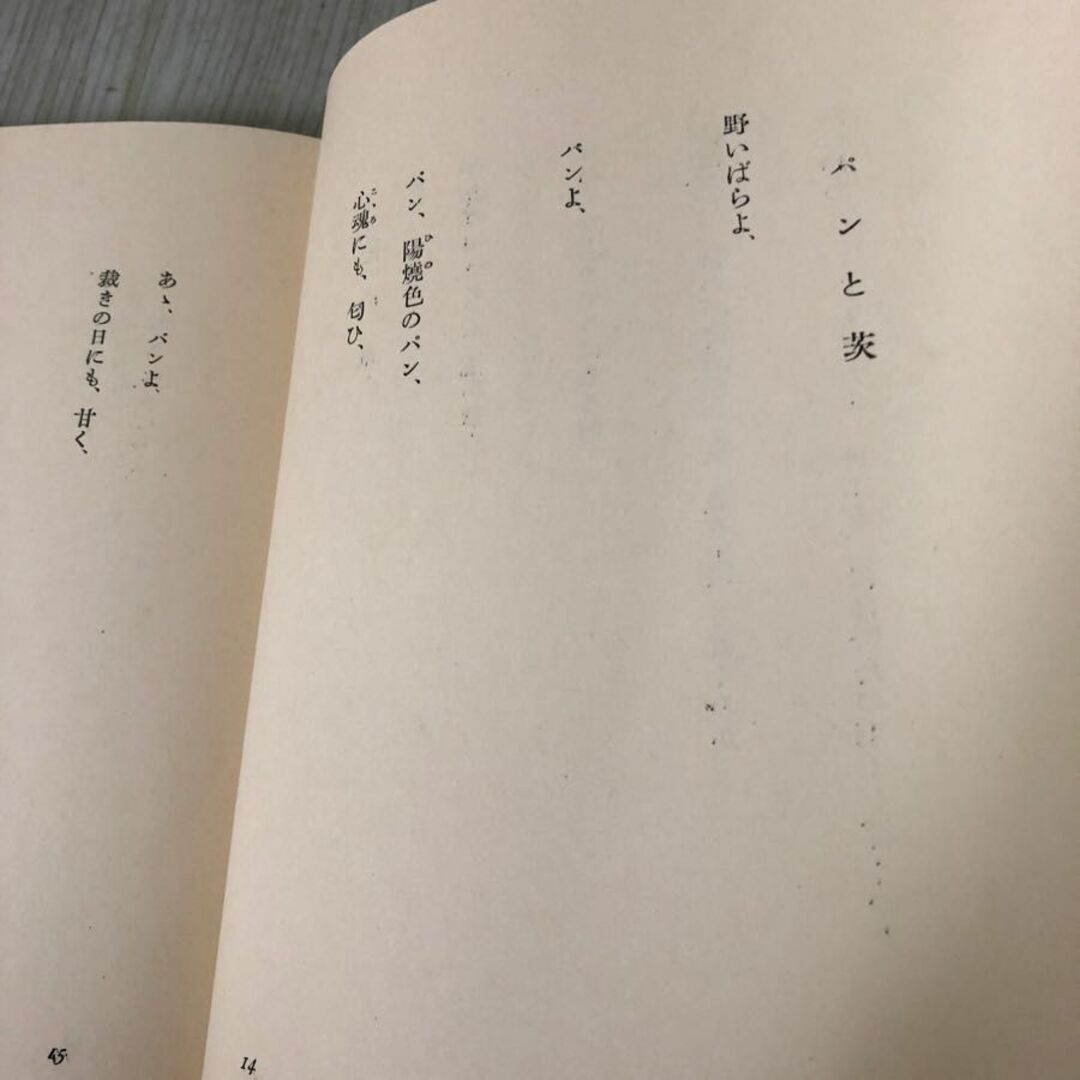 パンと茨
野いばらよ、
パンよ、
パン、陽燒色のパン、
心魂にも、匂ひ、
14
あゝ、パンよ、
裁きの日にも、甘く、
45